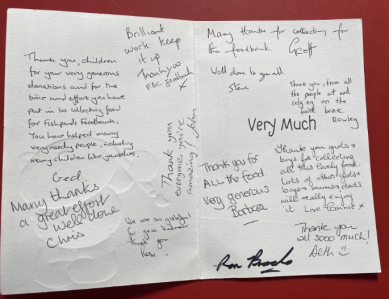 Thank you, children
for your very generous
donations and for the
time and effort you have
put in to collecting food
for Fishponds Foodbank.
You have helped many
very needy people, including
many children like yourselves.
Ged.
Many thanks
a great effort
well done
Chris
Brilliant
work keep
it up
Thankyou
Foodbank
x
Thank you
everyone, you're
amazing! John
We are so grateful
for your kindness
thank you
Many thanks for collecting for
the foodbank. Geoff
Well done to you all.
Steve
Thank you, from all
the people at and
relying on the
food bank
Rowley
Very Much
Thank you for
ALL the food
Very generous
Barbara
Thank you girls &
boys for collecting
all this lovely food.
Lots of other girls &
boys & mums & dads
will really enjoy
it Love
x
Thank you
all sooo much!
Beth
Ron